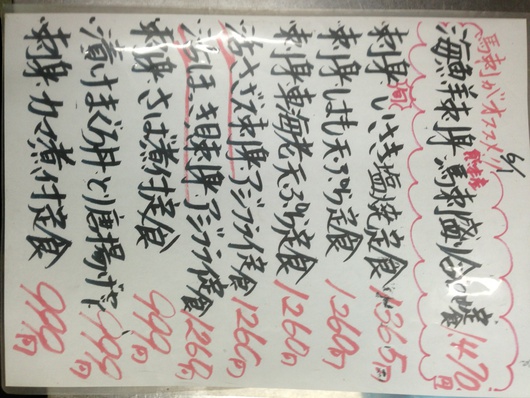 6/1
馬刺がオススメ!!
海鮮刺身 馬刺 1470円
刺身 旬 いさき塩焼定食 1365円
刺身 はも天ぷら定食 1260円
刺身 車海老天ぷら定食 1260円
活さざえ刺身 アジフライ定食 1260円
刺身 アジフライ定食 1260円
刺身 さば煮付定食 990円
漬けまぐろ丼と唐揚げ 990円
刺身 カマ煮付定食 990円